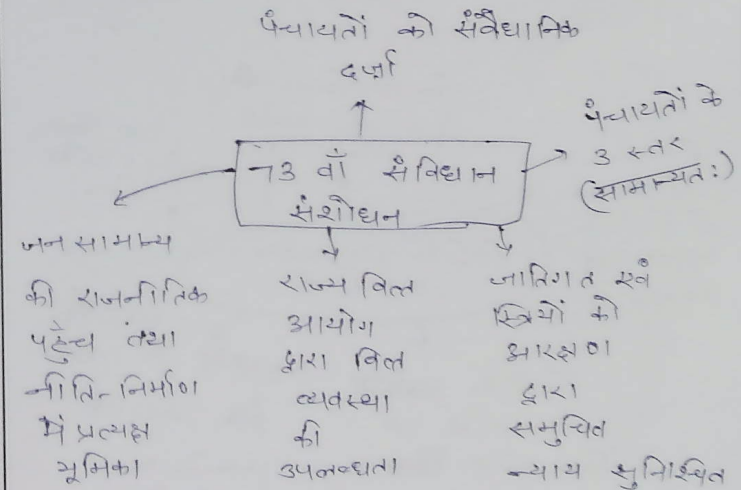 पंचायतों को संवैधानिक
दर्जा
पंचायतों के
3 स्तर
(सामान्यत:)
73 वाँ संविधान
संशोधन
जन सामान्य
की राजनीतिक
पहुँच तथा
नीति-निर्माण
में प्रत्यक्ष
भूमिका
राज्य वित्त
आयोग
द्वारा वित्त
व्यवस्था
की
उपलब्धता
जातिगत एवं
स्त्रियों को
आरक्षण
द्वारा
समुचित
न्याय सुनिश्चित